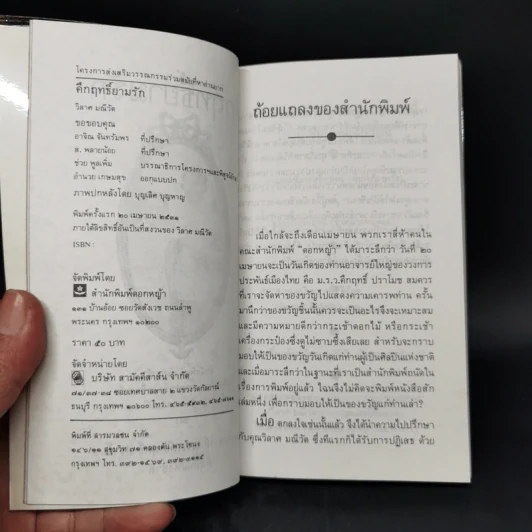 โครงการส่งเสริมวรรณกรรมร่วมสมัยที่หาอ่านยาก
คึกฤทธิ์ยามรัก
วิลาศ มณีวัต
ขอขอบคุณ
อาจิณ จันทรัมพร ที่ปรึกษา
ส. พลายน้อย ที่ปรึกษา
ช่วย พูลเพิ่ม บรรณาธิการโครงการฯและพิสูจน์อักษร
อำนวย เกษมสุข ออกแบบปก
ภาพปกหลังโดย บุญเลิศ บุญหาญ
พิมพ์ครั้งแรก ๒๐ เมษายน ๒๕๓๑
ภายใต้ลิขสิทธิ์อันเป็นที่สงวนของ วิลาศ มณีวัต
ISBN :
จัดพิมพ์โดย
สำนักพิมพ์ดอกหญ้า
๑๓๑ บ้านอ้อย ซอยวัดสังเวช ถนนลำพู
พระนคร กรุงเทพฯ ๑๐๒๐๐
ราคา ๕๐ บาท
จัดจำหน่ายโดย
บริษัท สามัคคีสาส์น จำกัด
ธนบุรี กรุงเทพฯ ๑๐๖๐๐
พิมพ์ที่ สารมวลชน จำกัด
ถ้อยแถลงของสำนักพิมพ์
เมื่อใกล้จะถึงเดือนเมษายน พวกเราสี่ห้าคนใน
คณะสำนักพิมพ์ “ดอกหญ้า” ได้มาระลึกว่า วันที่ ๒๐
เมษายนจะเป็นวันเกิดของท่านอาจารย์ใหญ่ของวงการ
ประพันธ์เมืองไทย คือ ม.ร.ว.คึกฤทธิ์ ปราโมช สมควร
ที่เราจะจัดหาของขวัญไปแสดงความเคารพท่าน ครั้น
มานึกว่าของขวัญชิ้นนั้นควรจะเป็นอะไรจึงจะเหมาะสม
และมีความหมายดีกว่ากระเช้าดอกไม้ หรือกระเช้า
เครื่องกระป๋องซึ่งดูไม่ซาบซึ้งเสียเลย สำหรับจะกราบ
มอบให้เป็นของขวัญวันเกิดแก่ท่านผู้เป็นศิลปินแห่งชาติ
และเมื่อมาระลึกว่าในฐานะที่เราเป็นสำนักพิมพ์ถนัดใน
เรื่องการพิมพ์อยู่แล้ว ไฉนจึงไม่คิดจะพิมพ์หนังสือสัก
เล่มหนึ่ง เพื่อกราบมอบให้เป็นของขวัญแก่ท่านเล่า?
เมื่อ ตกลงใจเช่นนั้นแล้ว จึงได้นำความไปปรึกษา
กับคุณวิลาศ มณีวัต ซึ่งทีแรกก็ได้รับการปฏิเสธ ด้วย